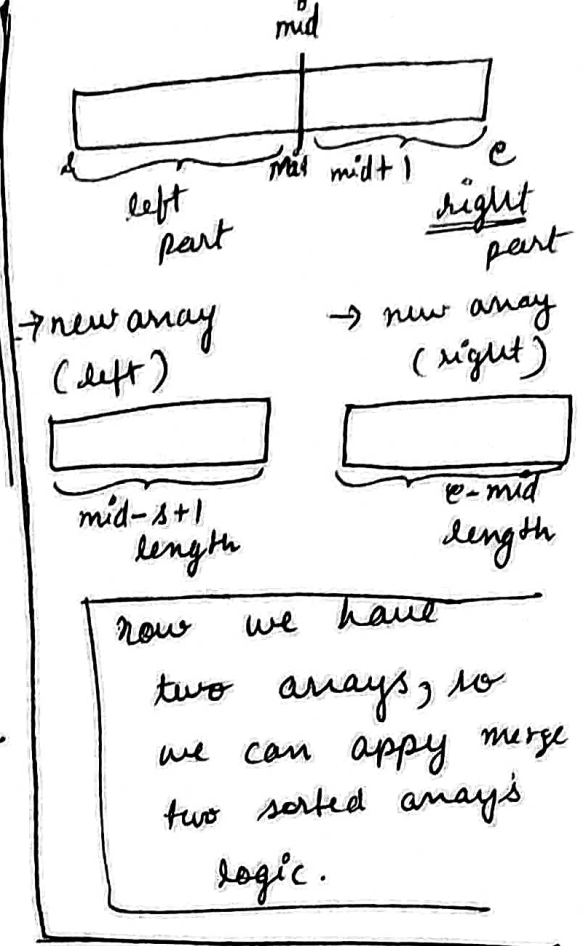 mid
s mid mid+1 e
left
part
right
part
→ new array
(left)
→ new array
(right)
mid-s+1
length
e-mid
length
now we have
two arrays, so
we can appy merge
two sorted arrays
logic.